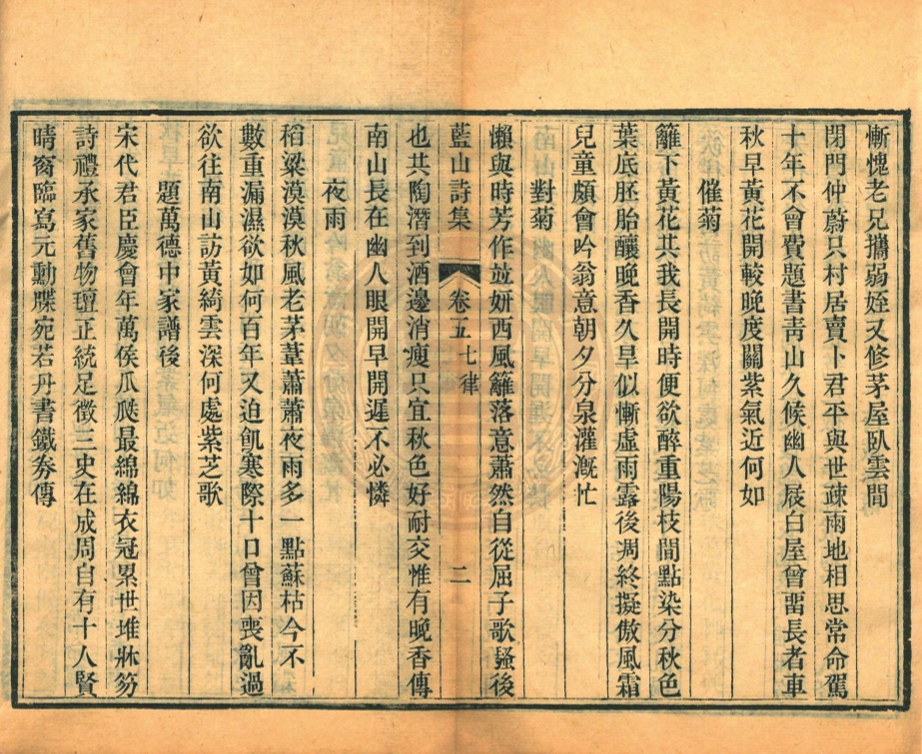 慚愧老兄攜弱姪又修茅屋臥雲間
閉門仲蔚只村居賣卜君平與世疎雨地相思常命駕
十年不會費題書靑山久候幽人屐白屋曾畱長者車
秋早黃花開較晚度關紫氣近何如
催菊
籬下黃花共我長開時便欲醉重陽枝間點染分秋色
葉底胚胎釀晚香久旱似慚虛雨露後凋終擬傲風霜
兒童頗會吟翁意朝夕分泉灌漑忙
對菊
懶與時芳作竝妍西風籬落意蕭然自從屈子歌騷後
藍山詩集
卷五七律
二
也共陶潛到酒邊消瘦只宜秋色好耐交惟有晚香傳
南山長在幽人眼開早開遲不必憐
夜雨
稻粱漠漠秋風老茅葦蕭蕭夜雨多一點蘇枯今不
數重漏濕欲如何百年又迫飢寒際十口曾因喪亂過
欲往南山訪黃綺雲深何處紫芝歌
題萬德中家譜後
宋代君臣慶會年萬侯瓜瓞最綿綿衣冠累世堆牀笏
詩禮承家舊物氊正統足徵三史在成周自有十人賢
晴窗臨寫元勳牒宛若丹書鐵券傳